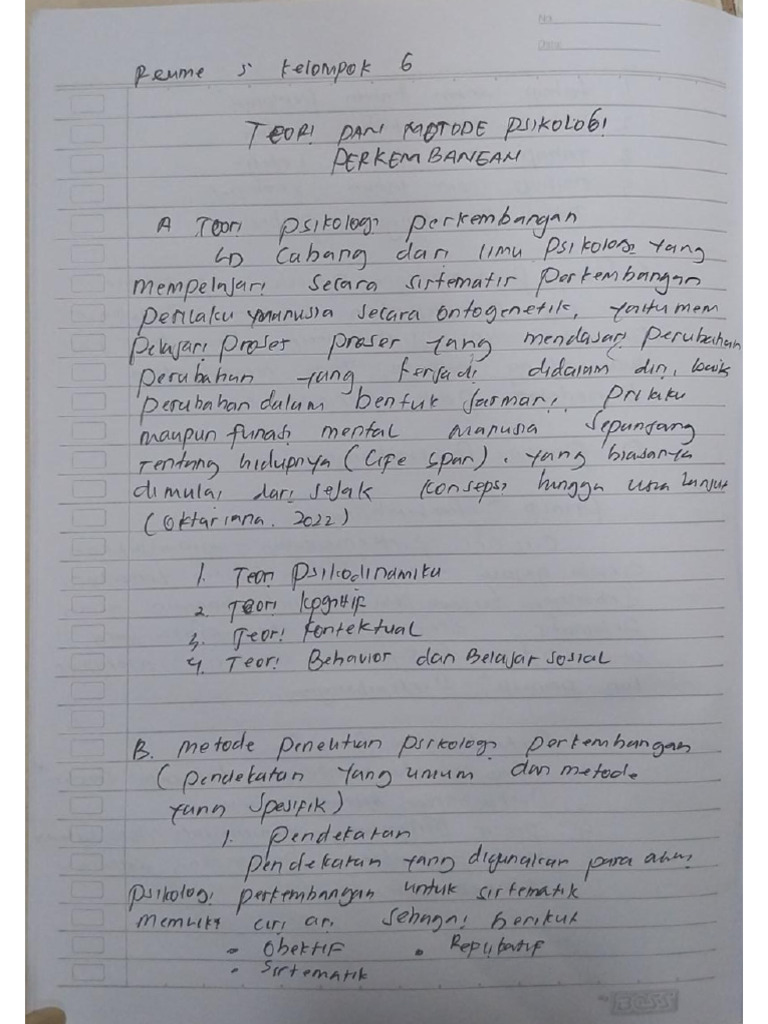 No.
Date
Reume 5 Kelompok 6
TEORI DAN METODE PSIKOLOGI
PERKEMBANGAN
A Teori psikologi perkembangan
↳ Cabang dari ilmu psikologi yang
mempelajari secara sistematis perkembangan
perilaku manusia secara ontogenetik, yaitu mem
pelajari proses proses yang mendasari perubahan
perubahan yang terjadi didalam diri, baik
perubahan dalam bentuk jasmani, prilaku
maupun fungsi mental manusia sepanjang
rentang hidupnya (Life span). yang biasanya
dimulai dari sejak konsepsi hingga usia lanjut
(Oktariana. 2022)
1. Teori psikodinamika
2. Teori kognitif
3. Teori kontektual
4. Teori Behavior dan Belajar sosial
B. metode penelitian psikologi perkembangan
(pendekatan yang umum dan metode
yang spesifik)
1. pendekatan
pendekatan yang digunakan para ahli
psikologi perkembangan untuk sistematik
memiliki ciri ciri sebagai berikut
• Obektif • Replikatif
• Sistematik
BOSS